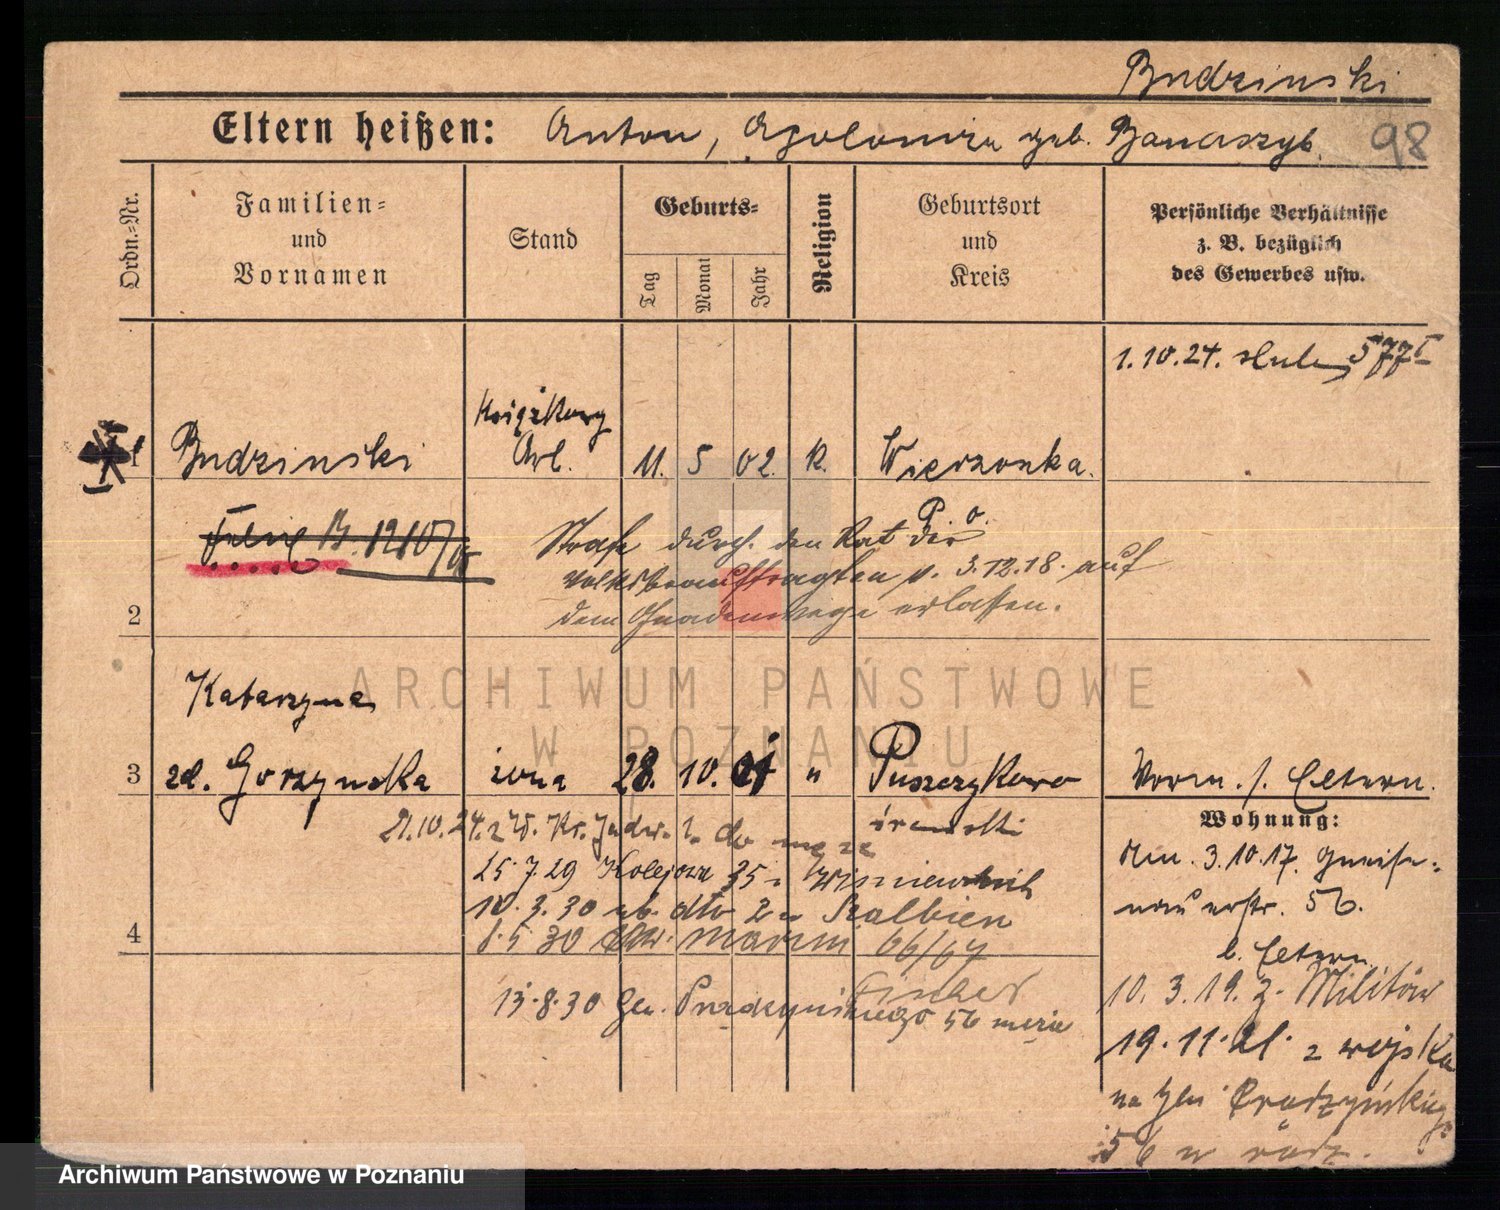 Budzinski
Eltern heißen: Anton, Apolonia geb. Banaszyk. 98
Ordn.-Nr.
Familien-
und
Vornamen
Stand
Geburts-
Tag
Monat
Jahr
Religion
Geburtsort
und
Kreis
Persönliche Verhältnisse
z. B. bezüglich
des Gewerbes usw.
1.10.24. 577 I
Książkowy
1 Budzinski Arb. 11. 5 02. K. Wierzonka.
P. o.
Strafe durch den Rat der
Volksbeauftragten v. 3.12.18. auf
dem Gnadenwege erlassen.
2
Katarzyna
3 zd. Gorzynska żona 28. 10. 01 " Puszczykowo Vorm. s. Eltern.
śremski
Wohnung:
21.10.24. z W. Kr. do męża
25.7.29 Kolejowa 35
10.3.30 dto 2
4
8.5.30 66/67
Fischer
13.8.30 Gen. Prądzyńskiego 56
3.10.17. Gneise-
nauerstr. 56.
b. Eltern.
10.3.19. z. Militär
19.11.21. z wojska
na Gen. Prądzyńskiego
56 u rodz.
ARCHIWUM PAŃSTWOWE
W POZNANIU
Archiwum Państwowe w Poznaniu